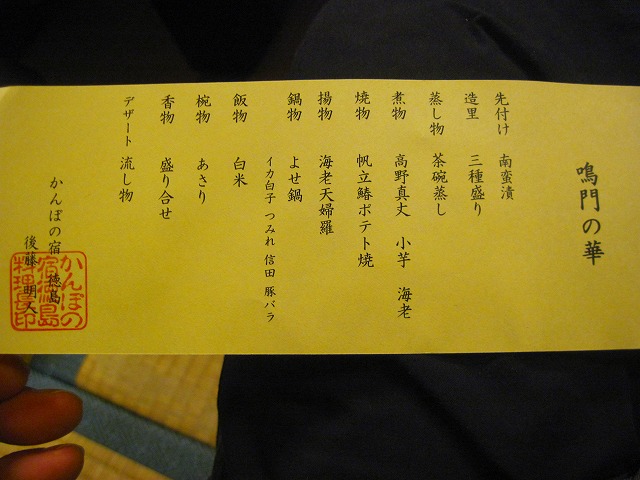 鳴門の華
先付け 南蛮漬
造里 三種盛り
蒸し物 茶碗蒸し
煮物 高野真丈 小芋 海老
焼物 帆立鰆ポテト焼
揚物 海老天婦羅
鍋物 よせ鍋
イカ白子 つみれ 信田 豚バラ
飯物 白米
椀物 あさり
香物 盛り合せ
デザート 流し物
かんぽの宿 徳島
後藤 明人
かんぽの
宿徳島
料理長印